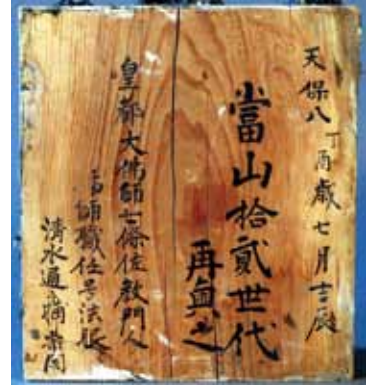 天保八丁酉歳七月吉辰
當山拾貳世代
再興之
皇都大佛師七條佐教門人
師職任号法眼
清水通